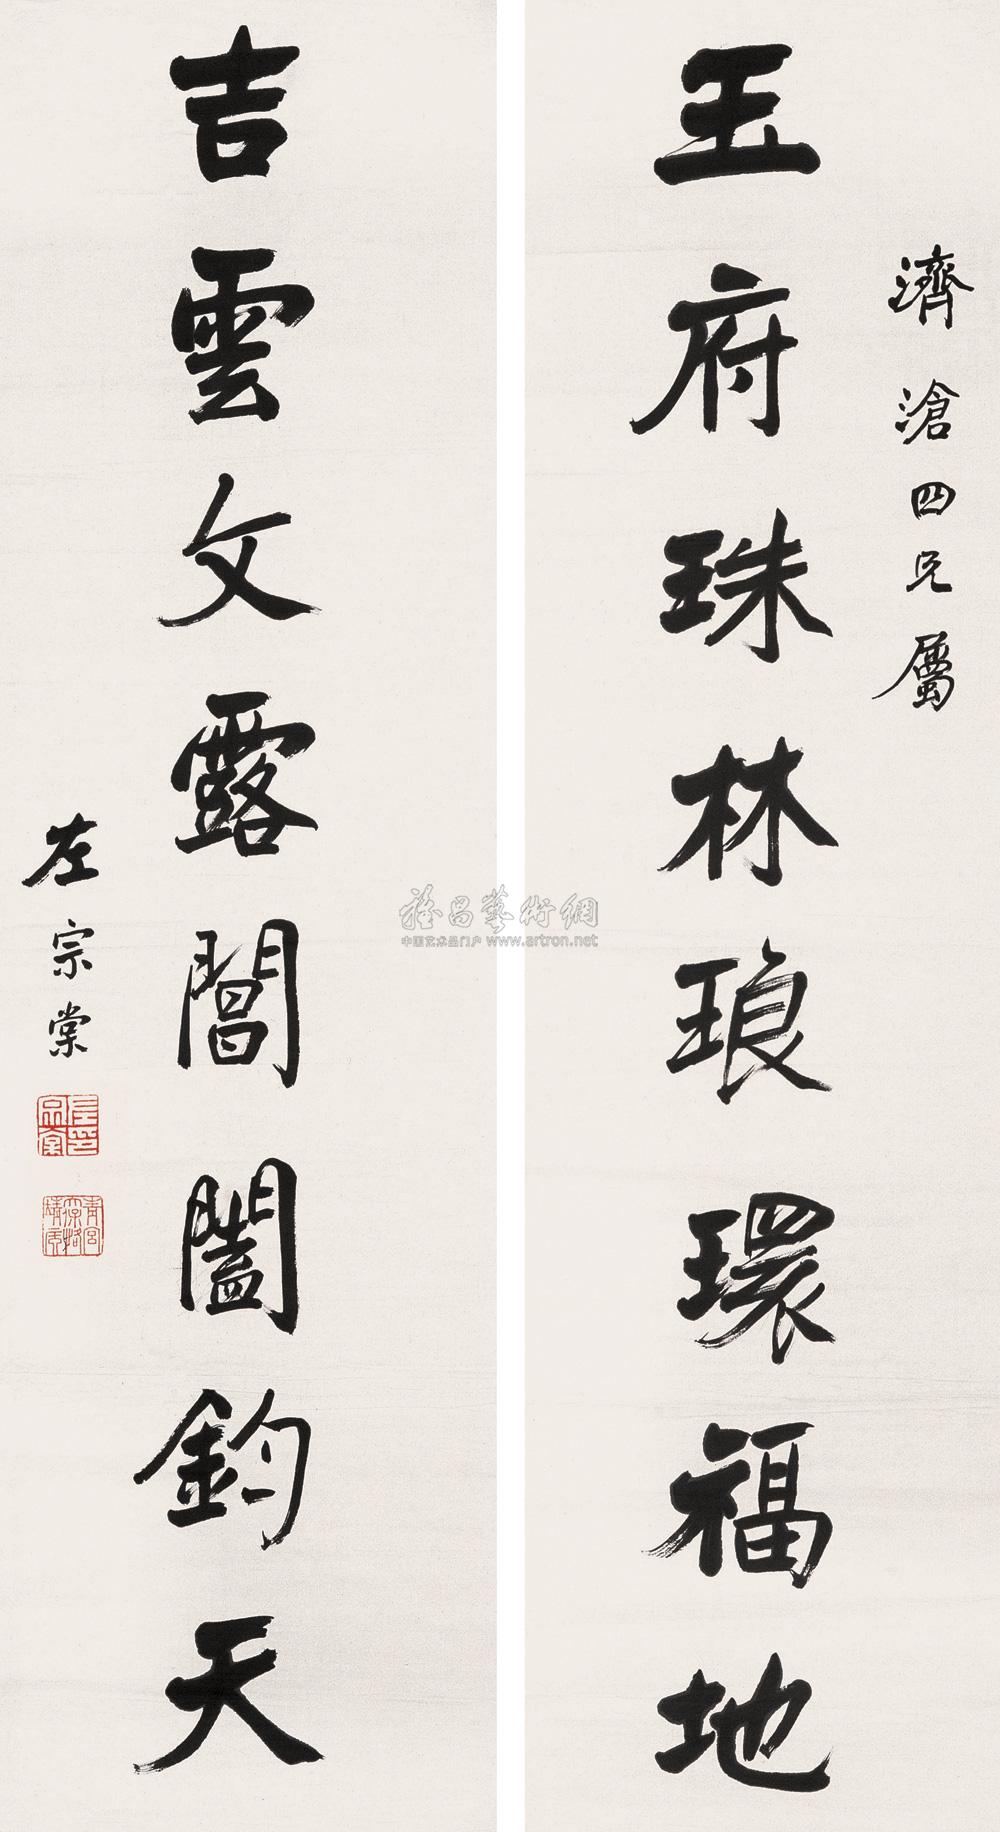 濟滄四兄屬
玉府珠林琅環福地
吉雲文露閶闔鈞天
左宗棠
雅昌藝術網
中国艺术品门户 www.artron.net